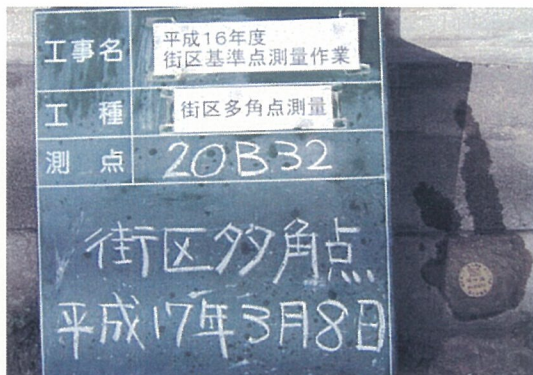 工事名 平成16年度
街区基準点測量作業
工種 街区多角点測量
測点 20B32
街区多角点
平成17年3月8日